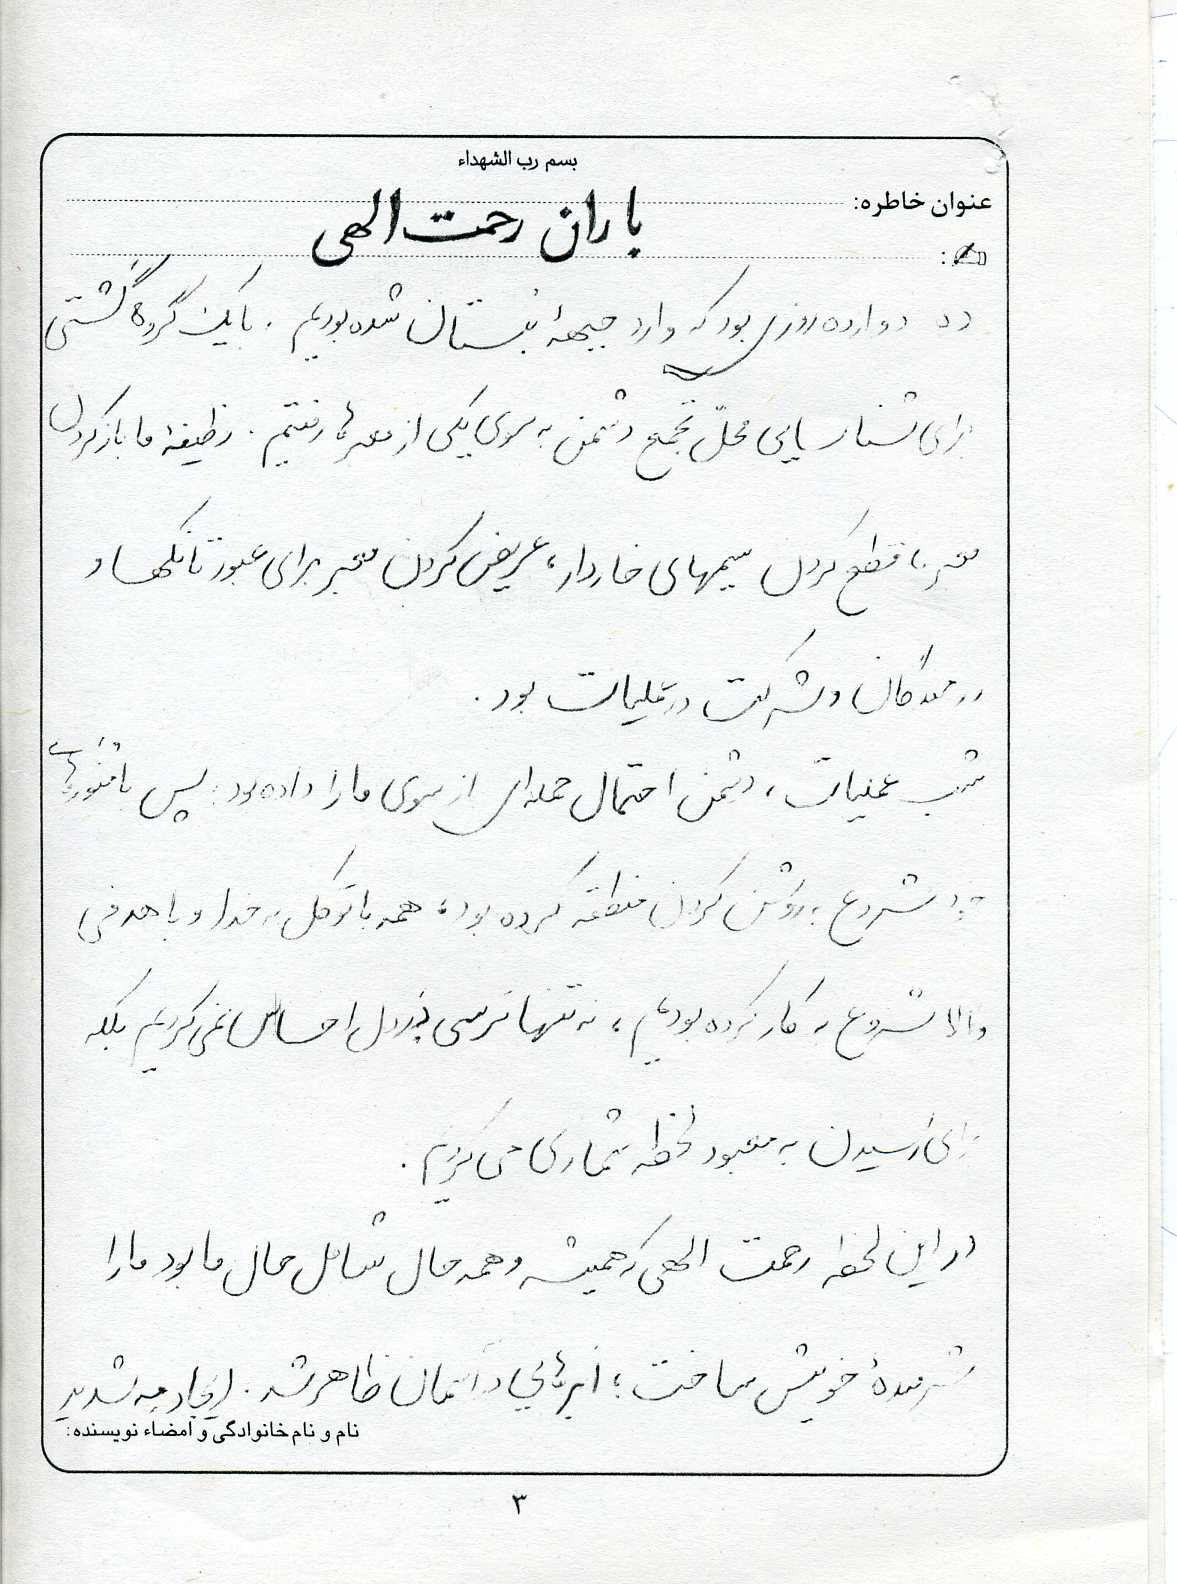 بسم رب الشهداء
عنوان خاطره:
باران رحمت الهی
ده دوازده روزی بود که وارد جبههٔ بستان شده بودیم. با یک گروه گشتی
برای شناسایی محلّ تجمع دشمن به سوی یکی از معبرها رفتیم. وظیفهٔ ما باز کردن
معبر با قطع کردن سیمهای خاردار، عریض کردن معبر برای عبور تانکها و
رزمندگان و شرکت در عملیات بود.
شب عملیات، دشمن احتمال حمله‌ای از سوی ما را داده بود؛ پس با منورهای
خود شروع به روشن کردن منطقه کرده بود، همه با توکل به خدا و با هدفی
والا شروع به کار کرده بودیم، نه تنها ترسی در دل احساس نمی‌کردیم بلکه
برای رسیدن به معبود لحظه شماری می‌کردیم.
در این لحظه رحمت الهی که همیشه و همه حال شامل حال ما بود ما را
شرمندهٔ خویش ساخت؛ ابرهایی در آسمان ظاهر شد. شدید
نام و نام خانوادگی و امضاء نویسنده:
۳